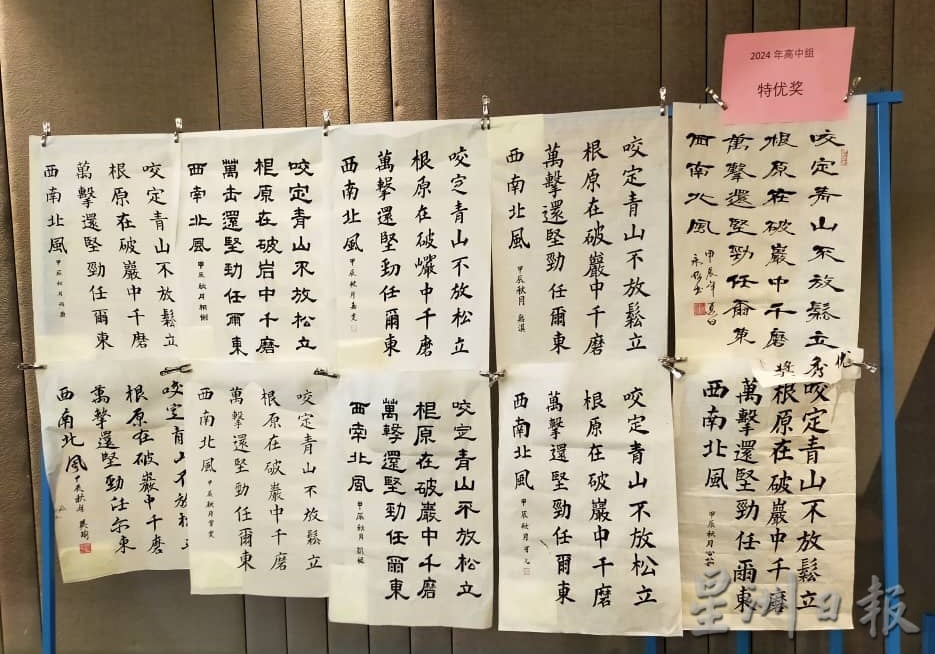 2024 年高中组
特优奖
咬定青山不放鬆立
根原在破巖中千磨
萬擊還堅勁任爾東
西南北風
咬定青山不放鬆立
根原在破巖中千磨
萬擊還堅勁任爾東
西南北風 甲辰秋月
咬定青山不放松立
根原在破巗中千磨
萬擊還堅勁任爾東
西南北風 甲辰秋月
咬定青山不放松立
根原在破岩中千磨
萬击還堅劲任爾東
西南北風 甲辰秋月
咬定青山不放鬆立
根原在破巖中千磨
萬擊還堅勁任爾東
西南北風 甲辰秋月
优秀奖
咬定青山不放鬆立
根原在破巖中千磨
萬擊還堅勁任爾東
西南北風 甲辰秋月
咬定青山不放松立
根原在破巖中千磨
萬擊還堅勁任爾東
西南北風 甲辰秋月
咬定青山不放松立
根原在破巖中千磨
萬擊還堅勁任爾東
西南北風 甲辰秋月
咬定青山不放鬆立
根原在破巖中千磨
萬擊還堅勁任爾東
西南北風 甲辰秋月
咬定青山不放松立
根原在破巖中千磨
萬擊還堅勁任尔東
西南北風 甲辰秋月
星洲日報